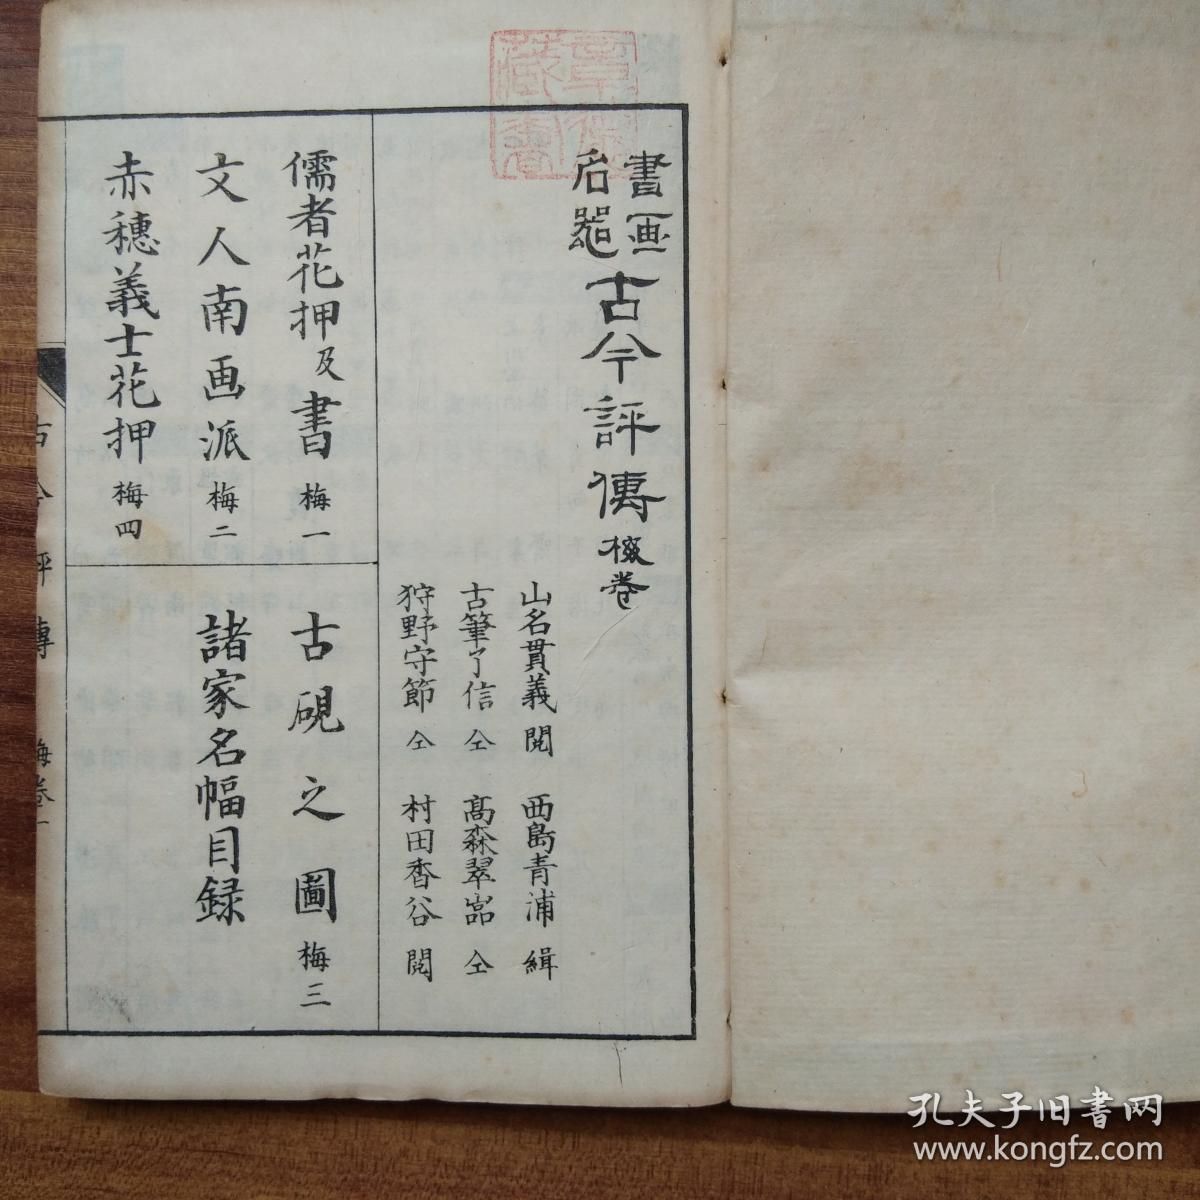 書画
名器
古今評傳
山名貫義 閲 西島青浦 緝
古筆了信 仝 髙森翠嵓 仝
狩野守節 仝 村田香谷 閲
儒者花押及書 梅一
文人南画派 梅二
赤穂義士花押 梅四
古硯之圖 梅三
諸家名幅目録
古今評傳 梅卷一
孔夫子旧书网
www.kongfz.com